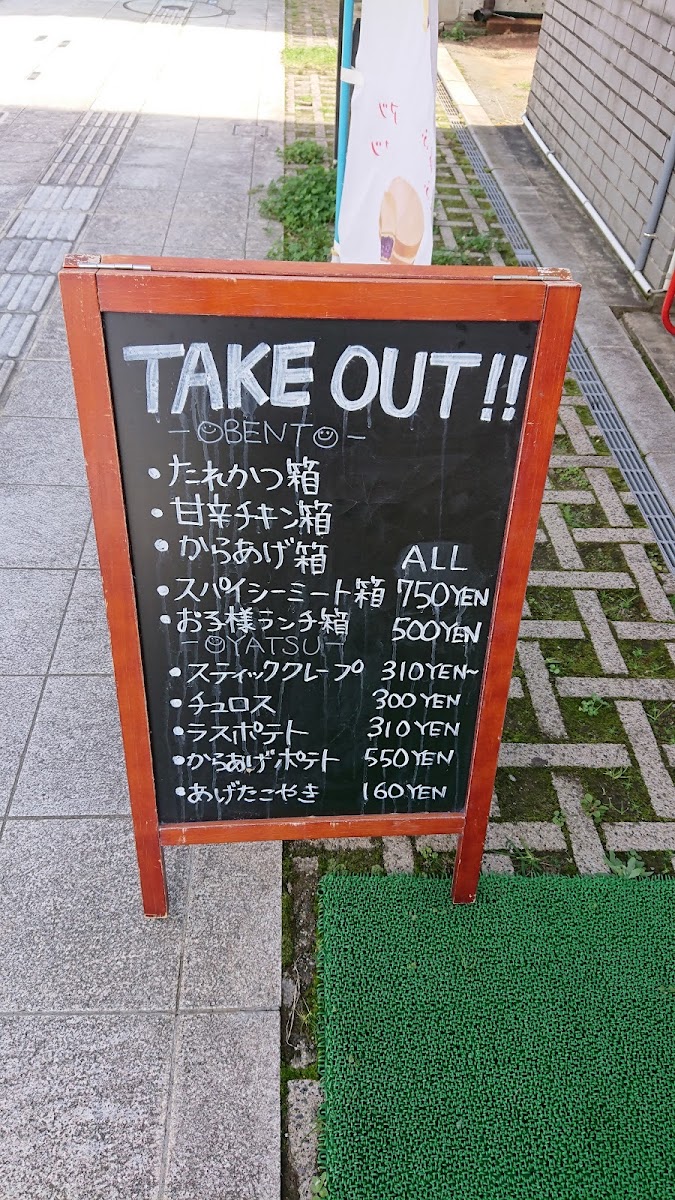 TAKE OUT!!
-OBENTO-
・たれかつ箱
・甘辛チキン箱
・からあげ箱 ALL
・スパイシーミート箱 750YEN
・お子様ランチ箱 500YEN
-OYATSU-
・スティッククレープ 310YEN~
・チュロス 300YEN
・ラスポテト 310YEN
・からあげポテト 550YEN
・あげたこやき 160YEN